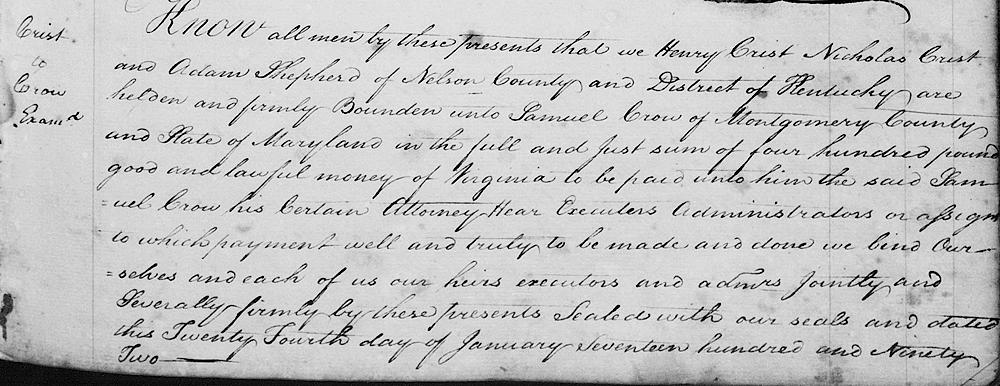 Crist
to
Crow
Exam.d
Know all men by these presents that we Henry Crist Nicholas Crist
and Adam Shepherd of Nelson County and District of Kentucky are
helden and firmly Bounden unto Samuel Crow of Montgomery County
and State of Maryland in the full and Just sum of four hundred pound
good and lawful money of Virginia to be paid unto him the said Sam
=uel Crow his Certain Attorney Hear Executers Administrators or assign
to which payment well and truly to be made and done we bind Our-
=selves and each of us our heirs executors and admrs Jointly and
Severally firmly by these presents Sealed with our seals and dated
this Twenty Fourth day of January Seventeen hundred and Ninety
Two